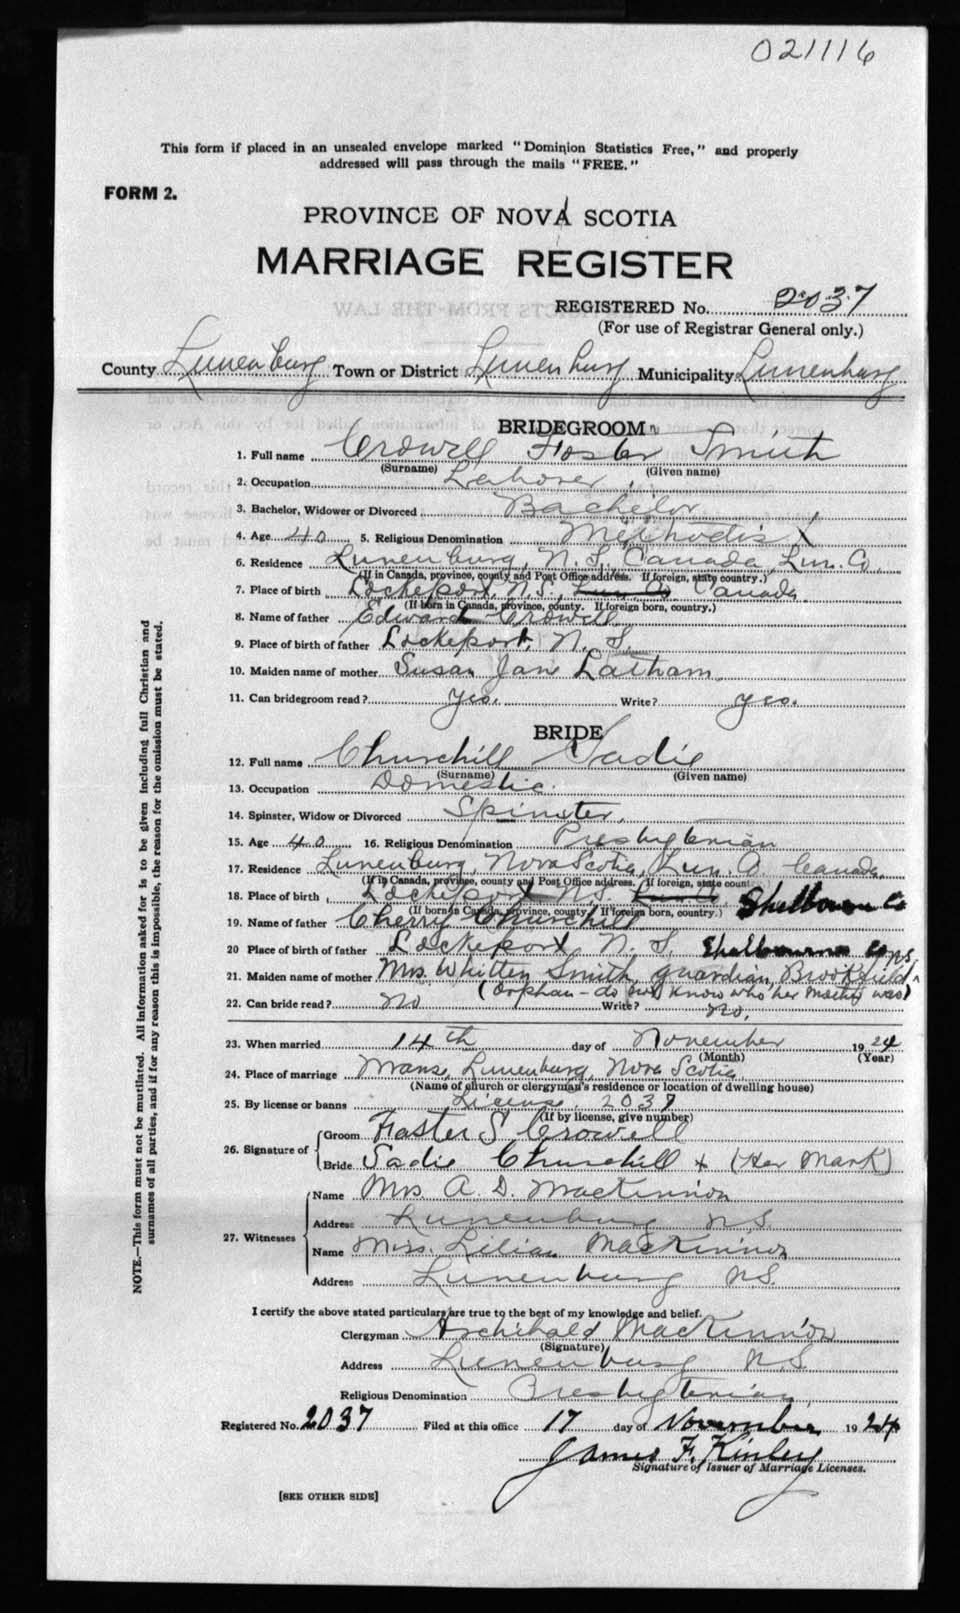 021116
This form if placed in an unsealed envelope marked "Dominion Statistics Free," and properly
addressed will pass through the mails "FREE."
FORM 2.
PROVINCE OF NOVA SCOTIA
MARRIAGE REGISTER
REGISTERED No. 2037
(For use of Registrar General only.)
County Lunenburg Town or District Lunenburg Municipality Lunenburg
BRIDEGROOM
1. Full name Crowell Foster Smith
(Surname) (Given name)
2. Occupation Laborer
3. Bachelor, Widower or Divorced Bachelor
4. Age 40 5. Religious Denomination Methodist
6. Residence Lunenburg, N.S., Canada, Lun. Co.
(If in Canada, province, county and Post Office address. If foreign, state country.)
7. Place of birth Lockeport, N.S., Lun Co Canada
(If born in Canada, province, county. If foreign born, country.)
8. Name of father Edward Crowell
9. Place of birth of father Lockeport, N. S.
10. Maiden name of mother Susan Jane Latham
11. Can bridegroom read? yes. Write? yes.
BRIDE
12. Full name Churchill Sadie
(Surname) (Given name)
13. Occupation Domestic.
14. Spinster, Widow or Divorced Spinster,
15. Age 40 16. Religious Denomination Presbyterian
17. Residence Lunenburg, Nova Scotia, Lun. Co. Canada.
(If in Canada, province, county and Post Office address. If foreign, state country.)
18. Place of birth Lockeport N.S. Lun Co Shelbourne Co
(If born in Canada, province, county. If foreign born, country.)
19. Name of father Cherry Churchill
20 Place of birth of father Lockeport, N. S, Shelbourne Co N.S.
21. Maiden name of mother Mrs. Whitten Smith, guardian, Brookfield
(Orphan - do not know who her mother was)
22. Can bride read? no Write? no.
23. When married 14th day of November 1924
(Month) (Year)
24. Place of marriage Manse, Lunenburg, Nova Scotia
(Name of church or clergyman's residence or location of dwelling house)
25. By license or banns License, 2037
(If by license, give number)
26. Signature of Groom Foster S. Crowell
Bride Sadie Churchill x (Her Mark)
27. Witnesses Name Mrs A. D. MacKinnon
Address Lunenburg N.S.
Name Miss. Lilian MacKinnon
Address Lunenburg N.S.
I certify the above stated particulars are true to the best of my knowledge and belief.
Clergyman Archibald MacKinnon
(Signature)
Address Lunenburg N.S.
Religious Denomination Presbyterian
Registered No. 2037 Filed at this office 17 day of November 1924
James F. Kinley
Signature of Issuer of Marriage Licenses.
[SEE OTHER SIDE]
NOTE.—This form must not be mutilated. All information asked for is to be given including full Christian and
surnames of all parties, and if for any reason this is impossible, the reason for the omission must be stated.